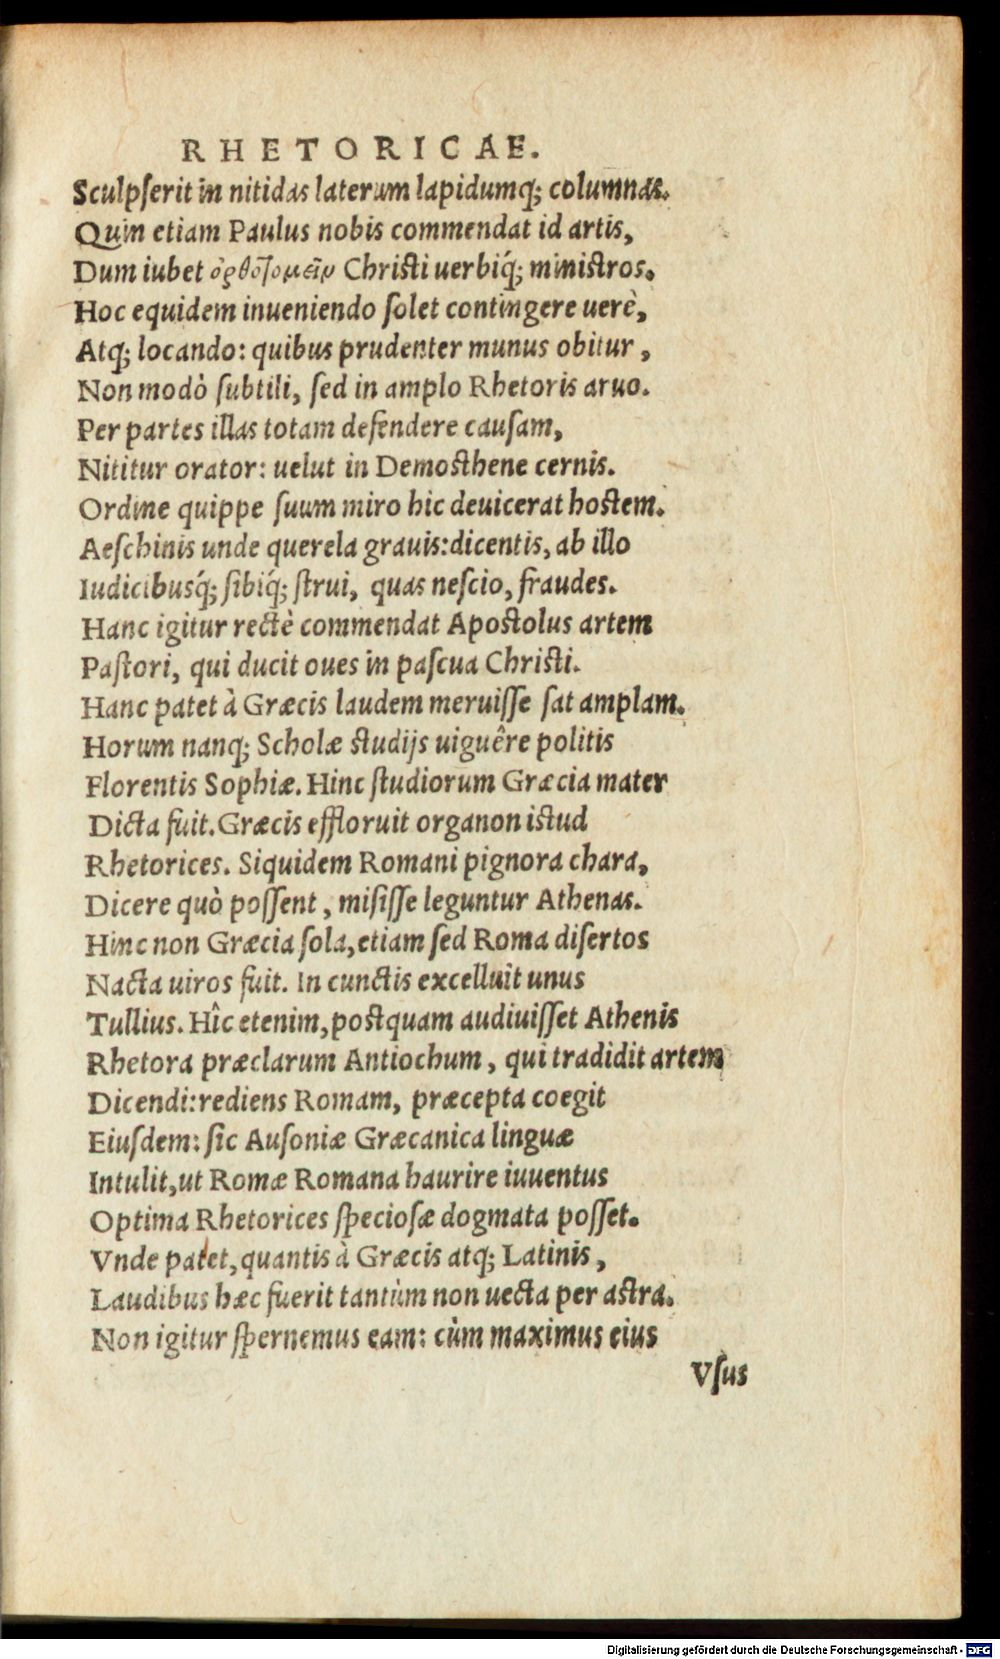 RHETORICAE.
Sculpſerit in nitidas laterum lapidumq; columnas.
Quin etiam Paulus nobis commendat id artis,
Dum iubet ὀρθοτομεῖν Chriſti uerbiq́; miniſtros.
Hoc equidem inueniendo ſolet contingere uerè,
Atq; locando: quibus prudenter munus obitur,
Non modò ſubtili, ſed in amplo Rhetoris aruo.
Per partes illas totam defendere cauſam,
Nititur orator: uelut in Demoſthene cernis.
Ordine quippe ſuum miro hic deuicerat hoſtem.
Aeſchinis unde querela grauis: dicentis, ab illo
Iudicibusq́; ſibiq́; ſtrui, quas neſcio, fraudes.
Hanc igitur rectè commendat Apoſtolus artem
Paſtori, qui ducit oues in paſcua Chriſti.
Hanc patet à Græcis laudem meruiſſe ſat amplam.
Horum nanq; Scholæ ſtudijs uiguêre politis
Florentis Sophiæ. Hinc ſtudiorum Græcia mater
Dicta fuit. Græcis effloruit organon iſtud
Rhetorices. Siquidem Romani pignora chara,
Dicere quò poſſent, miſiſſe leguntur Athenas.
Hinc non Græcia ſola, etiam ſed Roma diſertos
Nacta uiros fuit. In cunctis excelluit unus
Tullius. Hîc etenim, poſtquam audiuiſſet Athenis
Rhetora præclarum Antiochum, qui tradidit artem
Dicendi: rediens Romam, præcepta coegit
Eiuſdem: ſic Auſoniæ Græcanica linguæ
Intulit, ut Romæ Romana haurire iuuentus
Optima Rhetorices ſpecioſæ dogmata poſſet.
Vnde patet, quantis à Græcis atq; Latinis,
Laudibus hæc fuerit tantùm non uecta per aſtra.
Non igitur ſpernemus eam: cùm maximus eius
Vſus
Digitalisierung gefördert durch die Deutsche Forschungsgemeinschaft - DFG